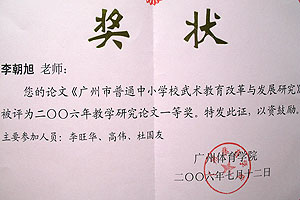 奖状
李朝旭 老师:
您的论文《广州市普通中小学校武术教育改革与发展研究》
被评为二〇〇六年教学研究论文一等奖。特发此证，以资鼓励。
主要参加人员：李旺华、高伟、杜国友
广州体育学院
二〇〇六年七月十二日